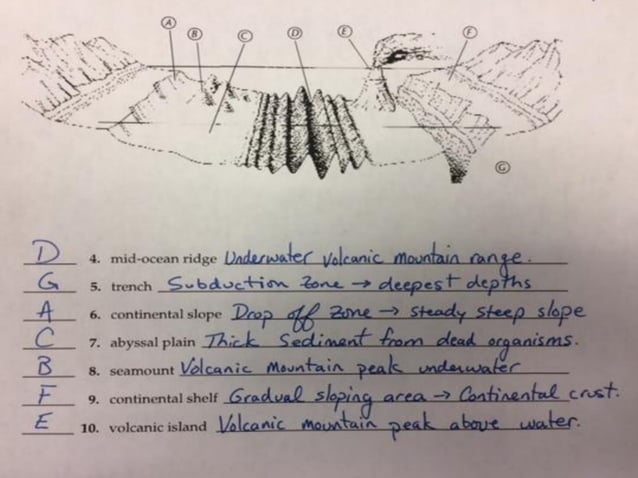 A B C D E F
G
D 4. mid-ocean ridge Underwater volcanic mountain range.
G 5. trench Subduction zone → deepest depths
A 6. continental slope Drop off zone → steady steep slope
C 7. abyssal plain Thick Sediment from dead organisms.
B 8. seamount Volcanic Mountain peak underwater
F 9. continental shelf Gradual sloping area → Continental crust.
E 10. volcanic island Volcanic mountain peak above water.